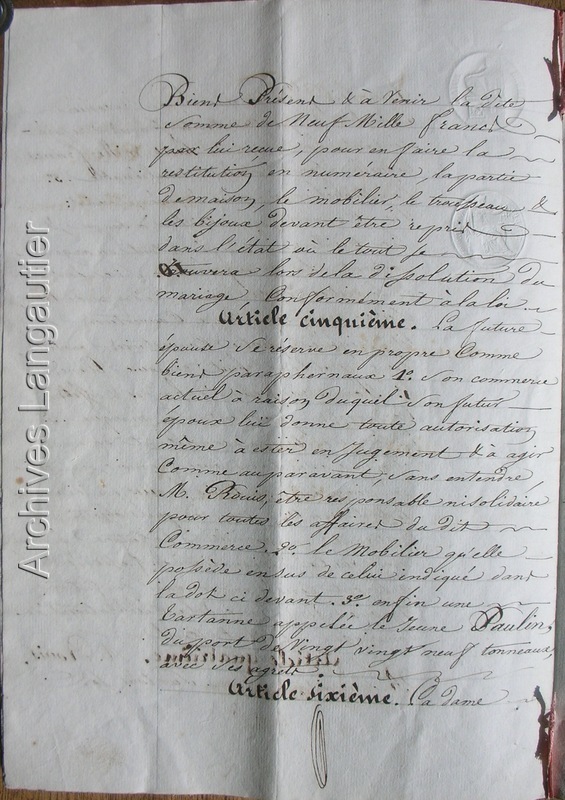 Biens Présens & à Venir la dite
Somme de Neuf Mille francs
par lui reçue, pour en faire la
restitution en numéraire, la partie
de maison, le mobilier, le trousseau &
les bijoux devant être repris
dans l'état où le tout se
trouvera lors de la dissolution du
mariage, Conformément a la loi.
Article cinquième. La future
épouse se réserve en propre Comme
biens paraphernaux 1º. Son commerce
actuel à raison duquel son futur
époux lui donne toute autorisation
même à ester en Jugement & à agir
Comme auparavant, sans entendre
M. Rouis, être responsable ni solidaire
pour toutes les affaires du dit
Commerce. 2º. le Mobilier qu'elle
possède en sus de celui indiqué dans
la dot ci devant. 3º. enfin une
Tartanne appelée le Jeune Paulin,
du port de Vingt vingt neuf tonneaux,
avec ses agrets.
Article sixième. La dame
Archives Langautier